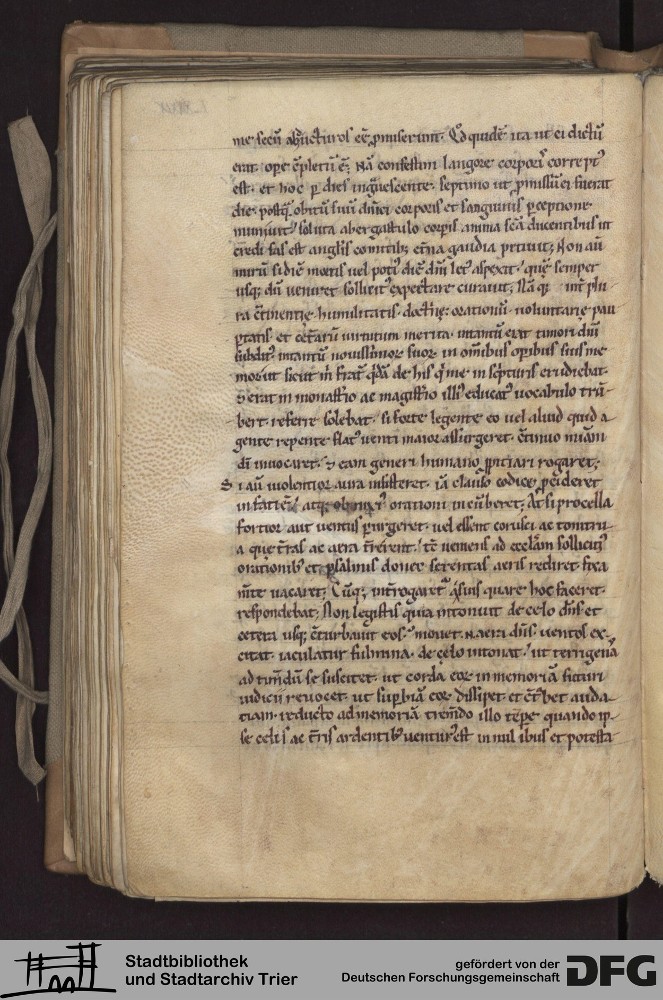 me secū abducturos eē, p̱miserunt. Qđ quidē ita ut ei dictū
erat. oꝑe ꝯpletū ē; Nā confestim langore corporis correpꝰ
est. et hoc ꝑ dies ingͣuescente. septimo ut p̱missū ei fuerat
die. postqͣ obitū suū dn̄ici corporis et sanguinis ꝑceptione
muniuit. soluta ab ergastulo corꝑis anima sc̄a ducentibus ut
credi fas est anglis comitibꝫ. et̄na gaudia petiuit; Non aū
mirū si diē mortis uel potiꝰ diē dn̄i letꝰ aspexit. quē semper
usqꝫ dū ueniret sollicitꝰ expectare curauit; Nā qꝫ int̄ plu
ra ꝯtinentię. humilitatis. doct̄nę. orationū. uoluntarię pau
ꝑtatis. et cet̄arū uirtutum merita. intantū erat timori dn̄i
subditꝰ. intantū nouissimoꝝ suoꝝ in om̄ibus oꝑibus suis me
mor. ut sicut m̄ frat̄ qͥdā de his qͥ me in sc̄pturis erudiebat.
⁊ erat in monast̄io ac magist̄io illiꝰ educatꝰ uocabulo trū
bert. referre solebat. si forte legente eo uel aliud quid a
gente repente flatꝰ uenti maior assurgeret. ꝯtinuo miām
dī inuocaret. ⁊ eam generi humano ꝓpitiari rogaret;
Si aū uiolentior aura insisteret. iā clauso codice ꝓcideret
in faciē. atqꝫ obnixiꝰ orationi incūberet; At si procella
fortior aut uentus ꝑurgeret. uel essent corusci ac tonitru
a quę t̄ras ac aera t̄rerent. tē ueniens ad ecclam sollicitꝰ
orationibꝫ et psalmis donec serenitas aeris rediret fixa
m̄te uacaret; Cūqꝫ int̄rogaretͬ a suis quare hoc faceret.
respondebat; Non legistis quia intonuit de celo dn̄s et
cetera usqꝫ ꝯturbauit eos. mouet .n. aera dn̄s. uentos ex-
citat. iaculatur fulmina. de cęlo intonat. ut terrigenā
ad timēdū se suscitet. ut corda eoꝝ in memoriā futuri
iudicii reuocet. ut suꝑbiā eoꝝ dissipet. et ꝯt̄bet auda-
tiam. reducto ad memoriā tremēdo illo tēpe. quando ip-
se celis ac t̄ris ardentibꝫ uenturꝰ est in nubibus et potesta
Stadtbibliothek
und Stadtarchiv Trier
gefördert von der
Deutschen Forschungsgemeinschaft
DFG